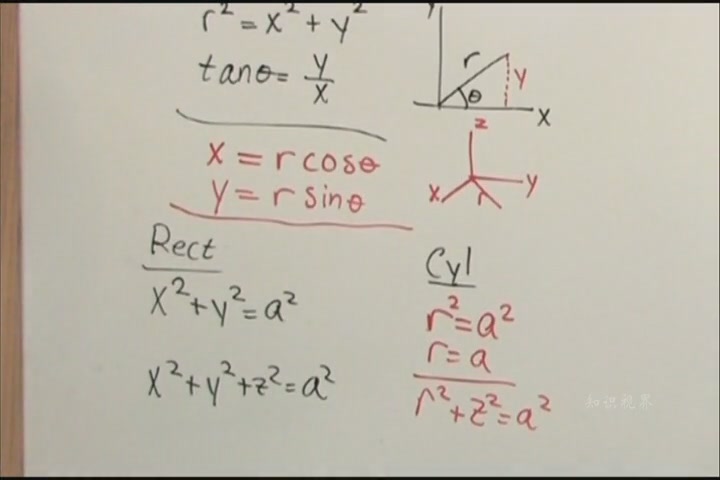 r² = x² + y²
tanθ = y/x
y
r
y
θ
x
x = r cosθ
y = r sinθ
z
x
y
r
Rect
x² + y² = a²
x² + y² + z² = a²
Cyl
r² = a²
r = a
r² + z² = a²
知识视界